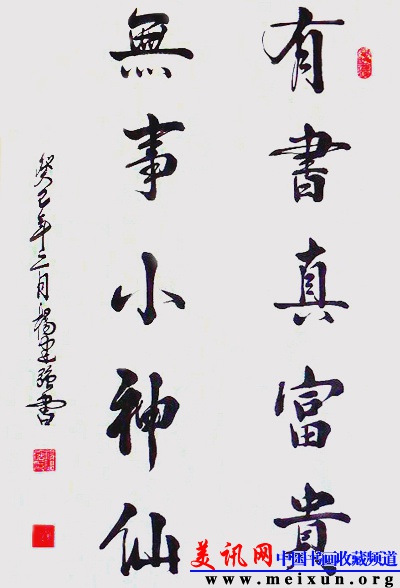 有書真富貴
無事小神仙
癸巳年二月楊建強書
美讯网 中国书画收藏频道
www.meixun.org